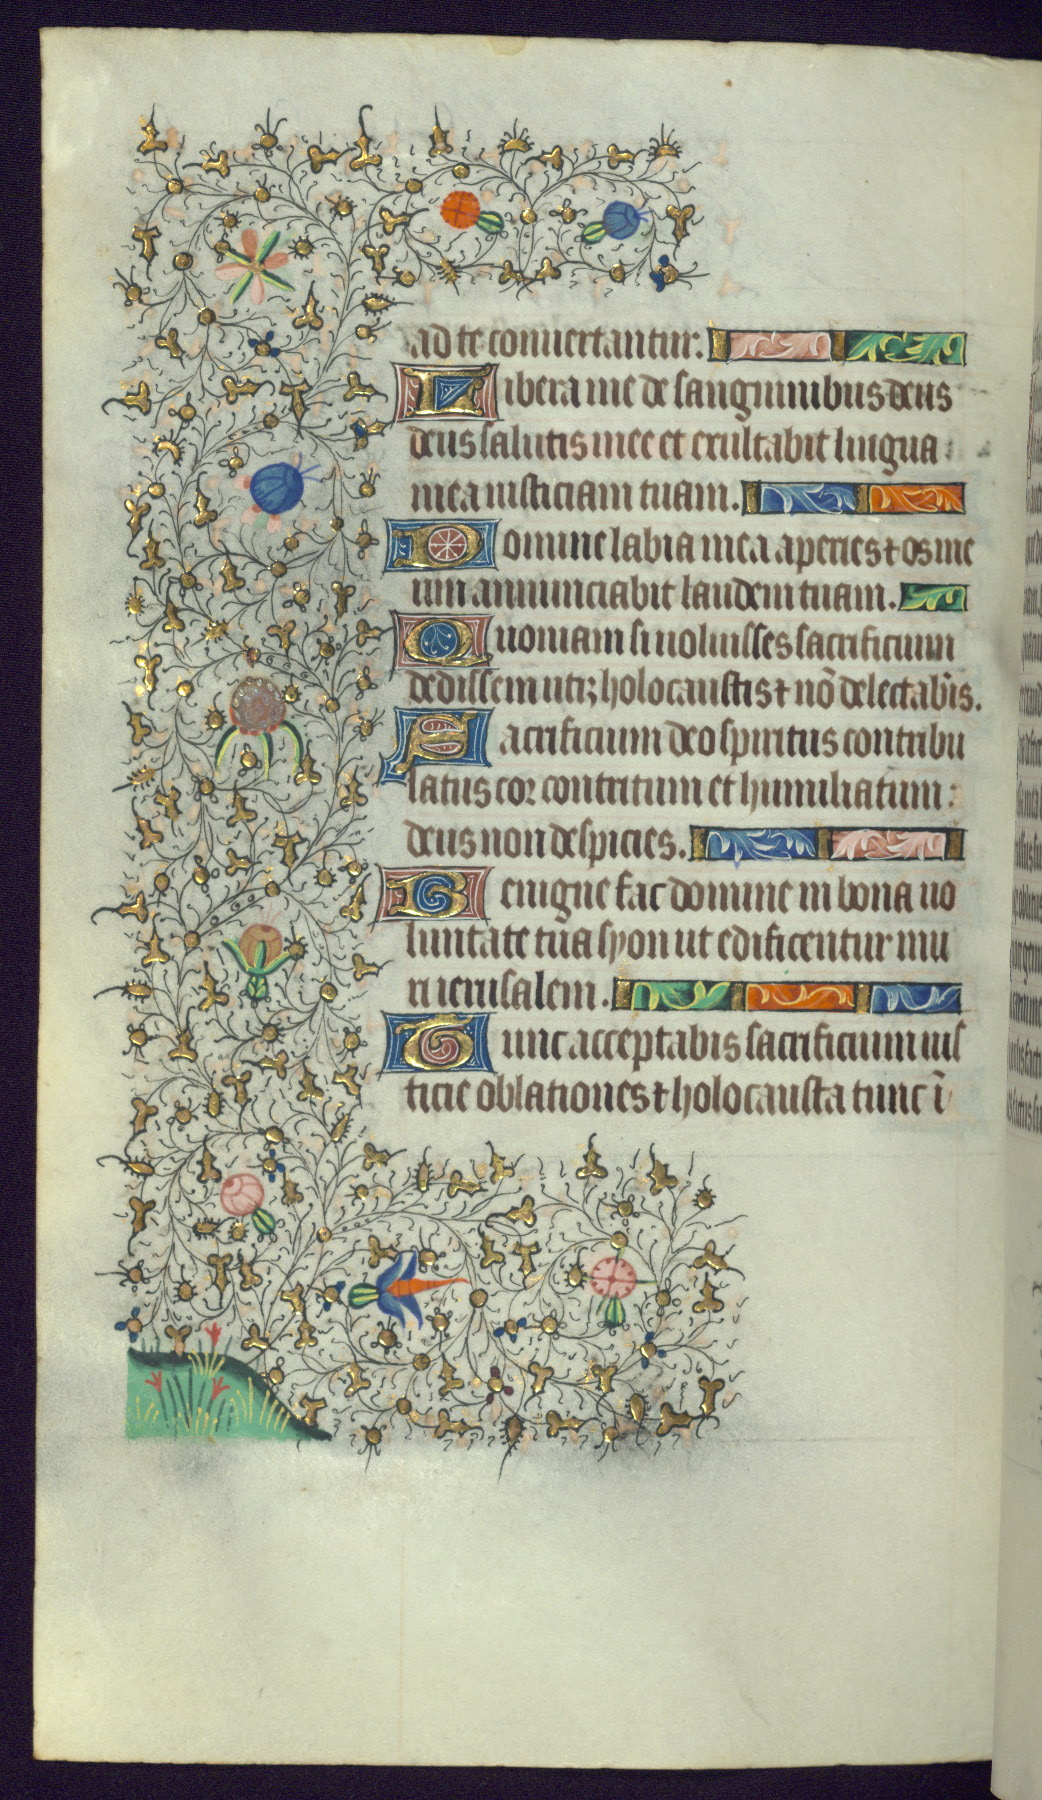 ad te conuertantur.
Libera me de sanguinibus deus
deus salutis mee et exultabit lingua
mea iusticiam tuam.
Domine labia mea aperies ⁊ os me
um annunciabit laudem tuam.
Quoniam si uoluisses sacrificium
dedissem utiꝫ holocaustis ⁊ nō delectab̄is.
Sacrificium deo spiritus contribu
latus cor contritum et humiliatum:
deus non despicies.
Benigne fac domine in bona uo
luntate tua syon ut edificentur mu
ri ierusalem.
Tunc acceptabis sacrificium ius
ticie oblationes ⁊ holocausta tunc ī